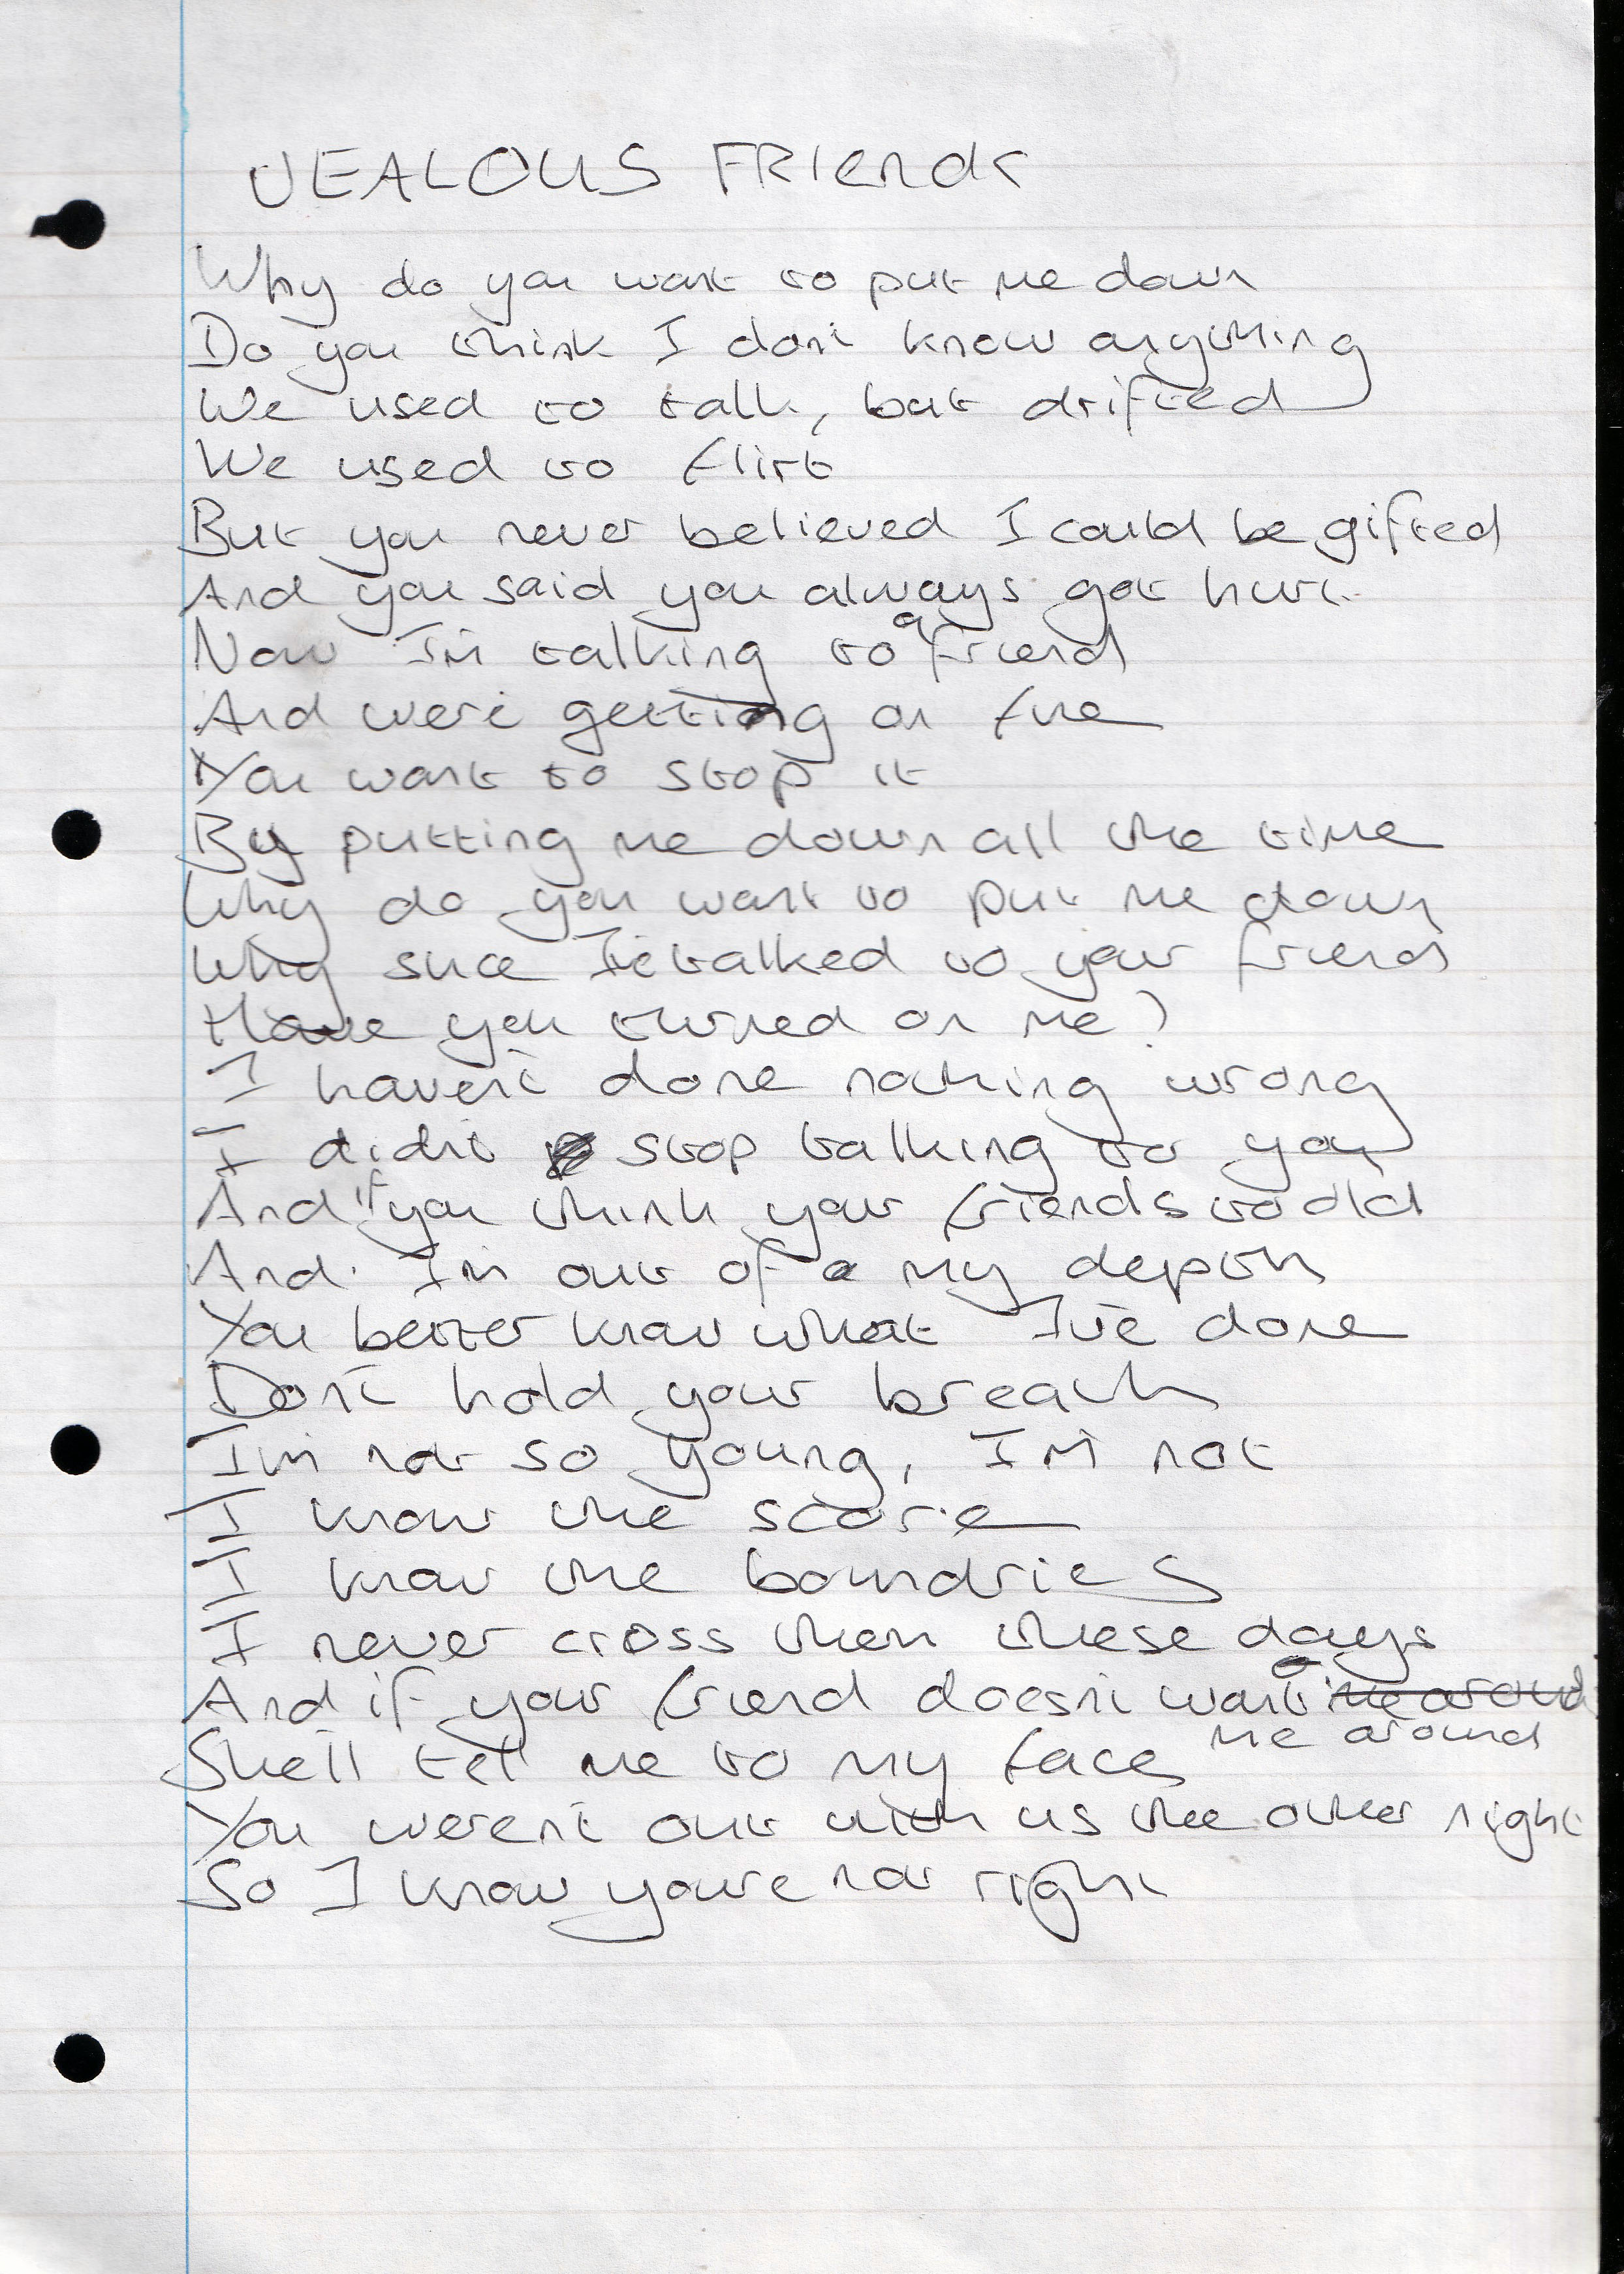 JEALOUS FRIENDS
Why do you want to put me down
Do you think I don't know anything
We used to talk, but drifted
We used to flirt
But you never believed I could be gifted
And you said you always got hurt
Now I'm talking to a friend
And we're getting on fine
You want to stop it
By putting me down all the time
Why do you want to put me down
Why since I've talked to your friend
Have you turned on me?
I haven't done nothing wrong
I didn't stop talking to you
And if you think your friends too old
And I'm out of my depth
You better know what I've done
Don't hold your breath
I'm not so young, I'm not
I know the score
I know the boundries
I never cross them these days
And if your friend doesn't want me around
me around
She'll tell me to my face
You weren't out with us the other night
So I know you're not right